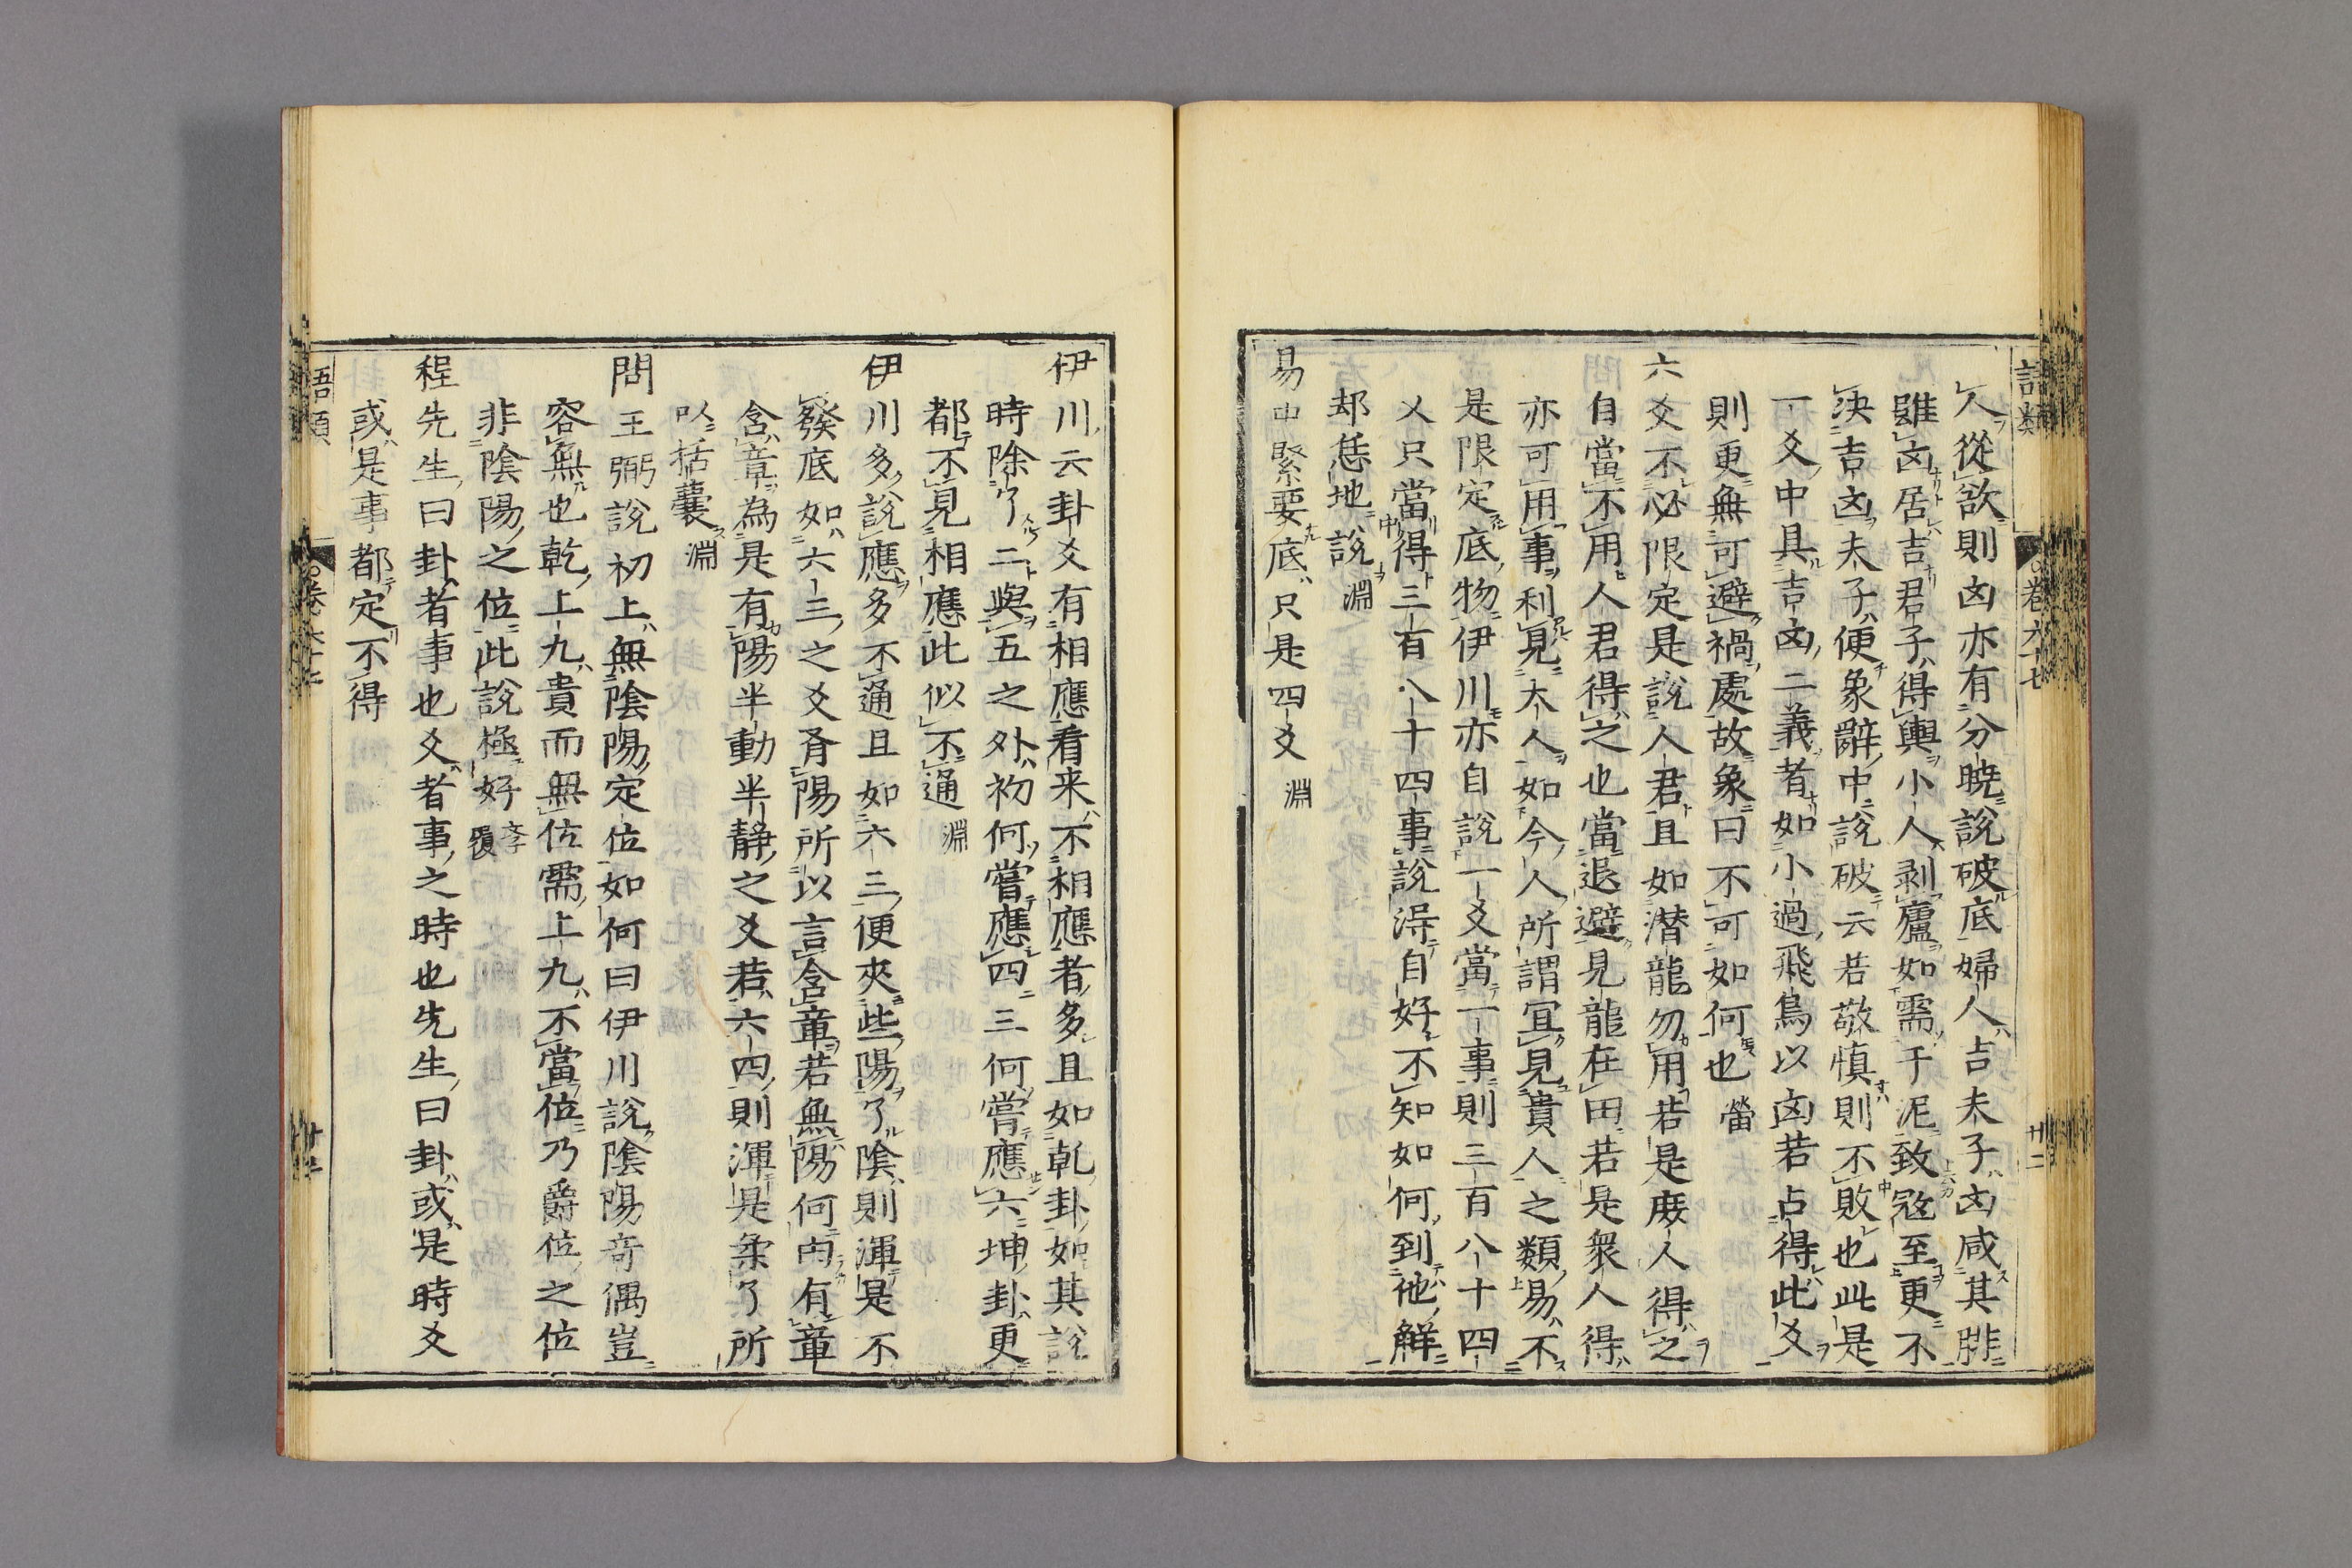 語類
卷六十七
廿二
人從欲則凶亦有分曉說破底婦人吉夫子凶咸其腓
雖凶居吉君子得輿小人剥廬如需于泥致寇至更不
决吉凶夫子便象辭中說破云若敬慎則不敗也此是
一爻中具吉凶二義者如小過飛鳥以凶若占得此爻
則更無可避禍處故象曰不可如何也 㽦
六爻不必限定是說人君且如潜龍勿用若是庶人得之
自當不用人君得之也當退避見龍在田若是衆人得
亦可用事利見大人如今人所謂冝見貴人之類易不
是限定底物伊川亦自說一爻當一事則三百八十四
爻只當得三百八十四事說得自好不知如何到他解
却恁地說 淵
易中緊要底只是四爻 淵
伊川云卦爻有相應看来不相應者多且如乾卦如其說
時除了二與五之外初何嘗應四三何嘗應六坤卦更
都不見相應此似不通 淵
伊川多說應多不通且如六三便夾些陽了陰則渾是不
發底如六三之爻有陽所以言含章若無陽何由有章
含章為是有陽半動半静之爻若六四則渾是柔了所
以括囊 淵
問王弼說初上無陰陽定位如何曰伊川說陰陽竒偶豈
容無也乾上九貴而無位需上九不當位乃爵位之位
非陰陽之位此說極好 學履
程先生曰卦者事也爻者事之時也先生曰卦或是時爻
或是事都定不得
語類
卷六十七